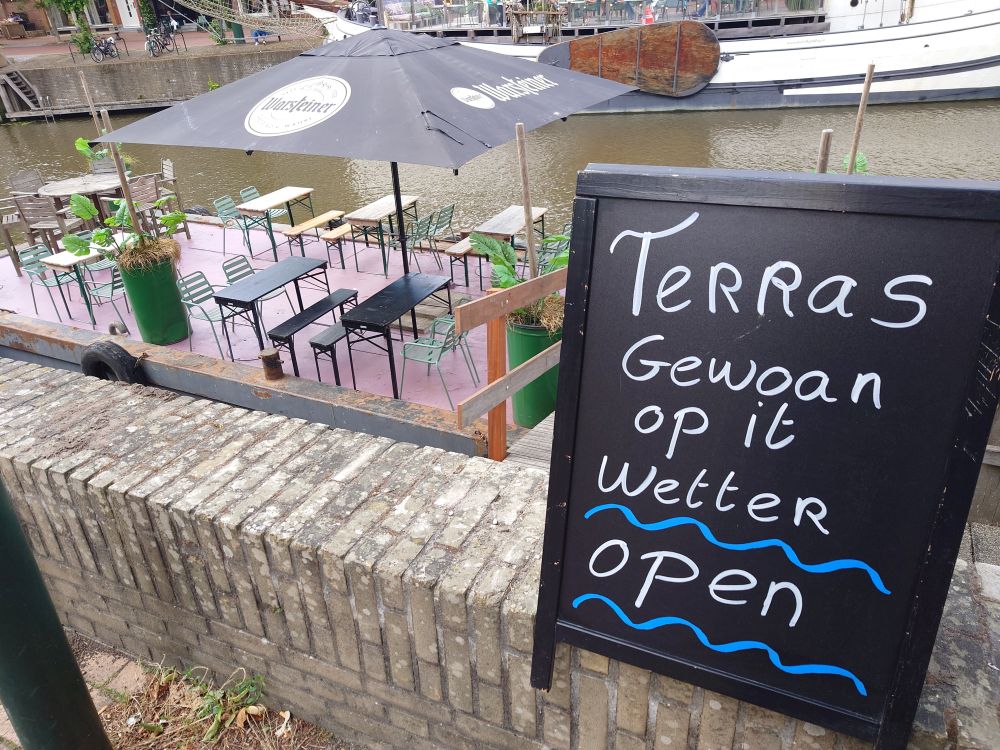 Warsteiner
Warsteiner
Terras
Gewoan
op it
Wetter
open